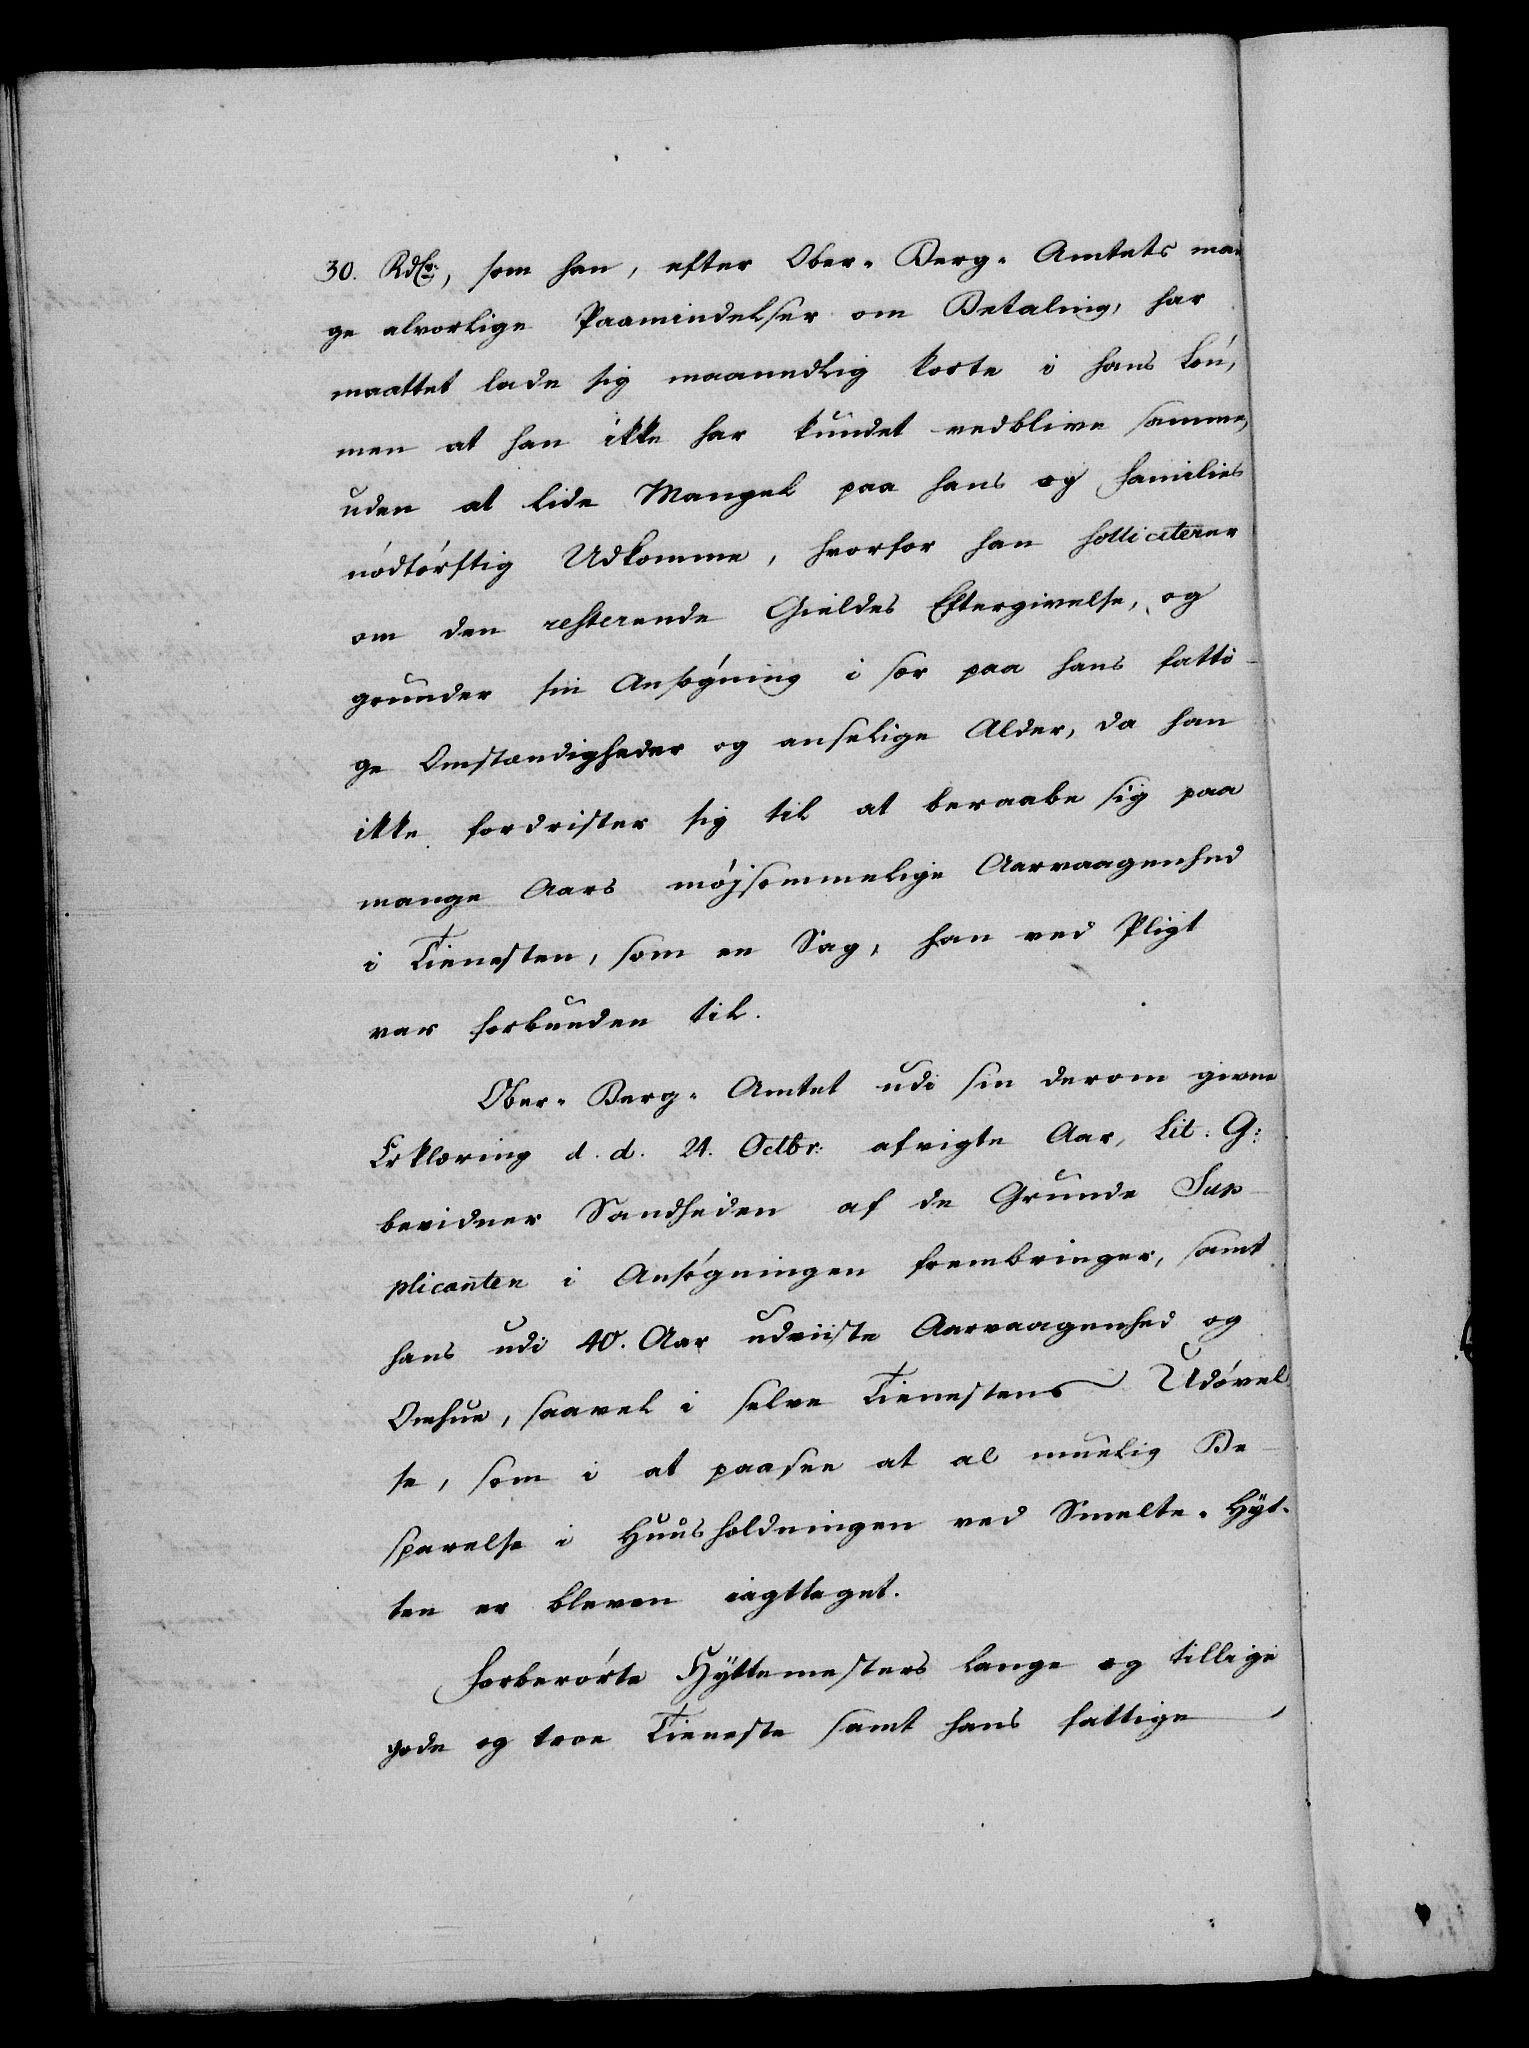 30. Rdlr:, som han, efter Ober-Berg-Amtets man-
ge alvorlige Paamindelser om Betaling, har
maattet lade sig maanedlig korte i hans Løn,
men at han ikke har kundet vedblive samme,
uden at lide Mangel paa hans og Families
nødtørftig Udkomme, hvorfor han solliciterer
om den resterende Gieldes Eftergivelse, og
grunder sin Ansøgning i sær paa hans fatti-
ge Omstændigheder og anselige Alder, da han
ikke fordrister sig til at beraabe sig paa
mange Aars møjsommelige Aarvaagenhed
i Tienesten, som en Sag, han ved Pligt
var forbunden til.
Ober-Berg-Amtet udi sin derom givne
Erklæring d. d. 24. Octbr: afvigte Aar, Lit. G:
bevidner Sandheden af de Grunde Sup-
plicanten i Ansøgningen frembringer, samt
hans udi 40. Aar udviiste Aarvaagenhed og
Omhue, saavel i selve Tienestens Udøvel
se, som i at paasee at al muelig Be-
sparelse i Huusholdningen ved Smelte-Hyt-
ten er bleven iagttaget.
Forberørte Hyttemesters lange og tillige
gode og troe Tieneste samt hans fattige